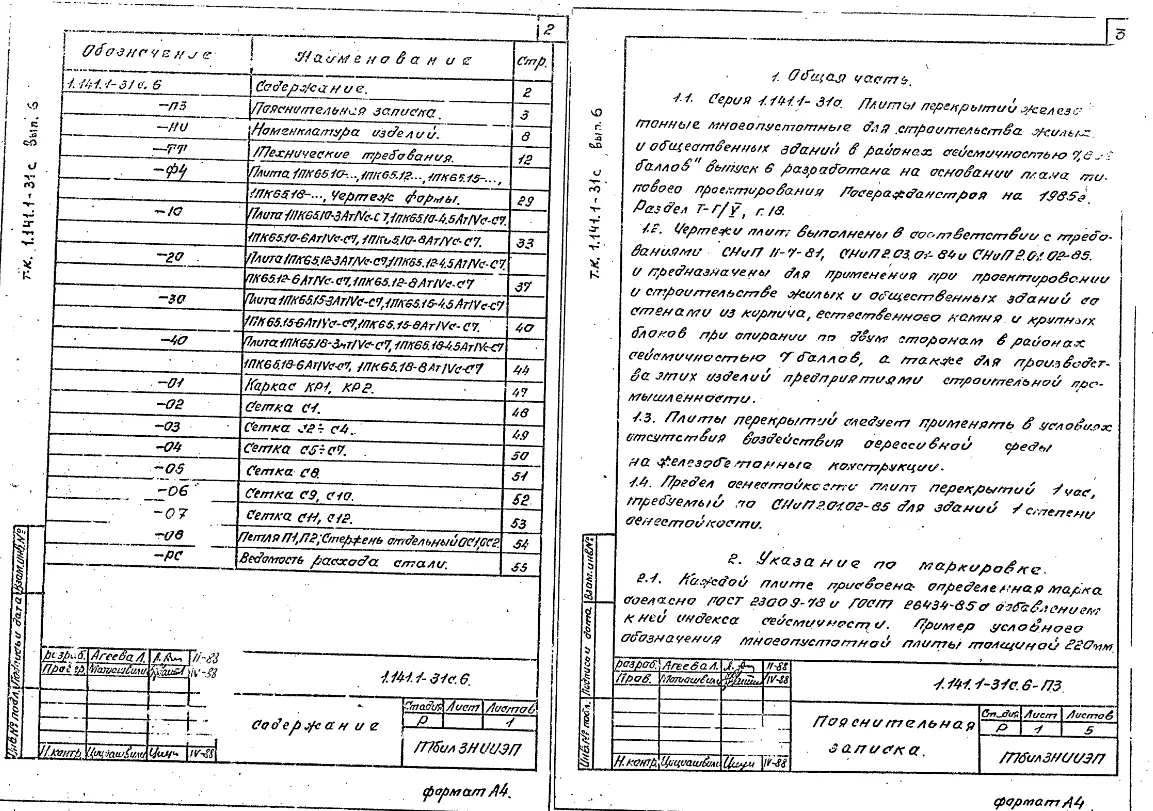 2
Обозначение Наименование Стр.
1.141.1-31с.6 Содержание. 2
-ПЗ Пояснительная записка. 3
-НИ Номенклатура изделий. 8
-ТТ Технические требования. 12
-Ф4 Плита 1ПК65.10-..., 1ПК65.12-..., 1ПК65.15-...,
1ПК65.18-..., Чертеж формы. 29
-10 Плита 1ПК65.10-3АтIVс-С7, 1ПК65.10-4,5АтIVс-С7
1ПК65.10-6АтIVс-С7, 1ПК65.10-8АтIVс-С7. 33
-20 Плита 1ПК65.12-3АтIVс-С7, 1ПК65.12-4,5АтIVс-С7,
ПК65.12-6АтIVс-С7, 1ПК65.12-8АтIVс-С7 37
-30 Плита 1ПК65.15-3АтIVс-С7, 1ПК65.15-4,5АтIVс-С7
1ПК65.15-6АтIVс-С7, 1ПК65.15-8АтIVс-С7. 40
-40 Плита 1ПК65.18-3АтIVс-С7, 1ПК65.18-4,5АтIVс-С7
1ПК65.18-6АтIVс-С7, 1ПК65.18-8АтIVс-С7 44
-01 Каркас КР1, КР2. 47
-02 Сетка С1. 48
-03 Сетка С2÷С4. 49
-04 Сетка С5÷С7. 50
-05 Сетка С8. 51
-06 Сетка С9, С10. 52
-07 Сетка С11, С12. 53
-08 Петля П1, П2; Стержень отдельный ОС1, ОС2 54
-РС Ведомость расхода стали. 55
Т.К. 1.141.1-31с вып. 6
Инв.№ подл. Подпись и дата Взам.инв.№
разраб. Агеева Л. II-88
Провер. IV-88
Н.контр. Цициашвили IV-88
1.141.1-31с.6.
содержание
Стадия Лист Листов
Р 1
ТбилЗНИИЭП
формат А4.
3
1. Общая часть.
1.1. Серия 1.141.1-31с. Плиты перекрытий железо
тонные многопустотные для строительства жилых
и общественных зданий в районах сейсмичностью 7,8
баллов" выпуск 6 разработана на основании плана ти-
пового проектирования Госгражданстроя на 1985г.
Раздел Т-Г/V, г.18.
1.2. Чертежи плит выполнены в соответствии с требо-
ваниями СНиП II-7-81, СНиП 2.03.01-84 и СНиП 2.01.02-85.
и предназначены для применения при проектировании
и строительстве жилых и общественных зданий со
стенами из кирпича, естественного камня и крупных
блоков при опирании по двум сторонам в районах
сейсмичностью 7 баллов, а также для производст-
ва этих изделий предприятиями строительной про-
мышленности.
1.3. Плиты перекрытий следует применять в условиях
отсутствия воздействия агрессивной среды
на железобетонные конструкции.
1.4. Предел огнестойкости плит перекрытий 1 час,
требуемый по СНиП 2.01.02-85 для зданий 1 степени
огнестойкости.
2. Указание по маркировке.
2.1. Каждой плите присвоена определенная марка
согласно ГОСТ 23009-78 и ГОСТ 26434-85 с добавлением
к ней индекса сейсмичности. Пример условного
обозначения многопустотной плиты толщиной 220мм.
Т.К. 1.141.1-31с вып. 6
Инв.№ подл. Подпись и дата Взам.инв.№
разраб. Агеева Л. II-88
Пров. IV-88
Н.контр. Цициашвили IV-88
1.141.1-31с.6-ПЗ
Пояснительная
записка.
Стадия Лист Листов
Р 1 5
ТбилЗНИИЭП
формат А4